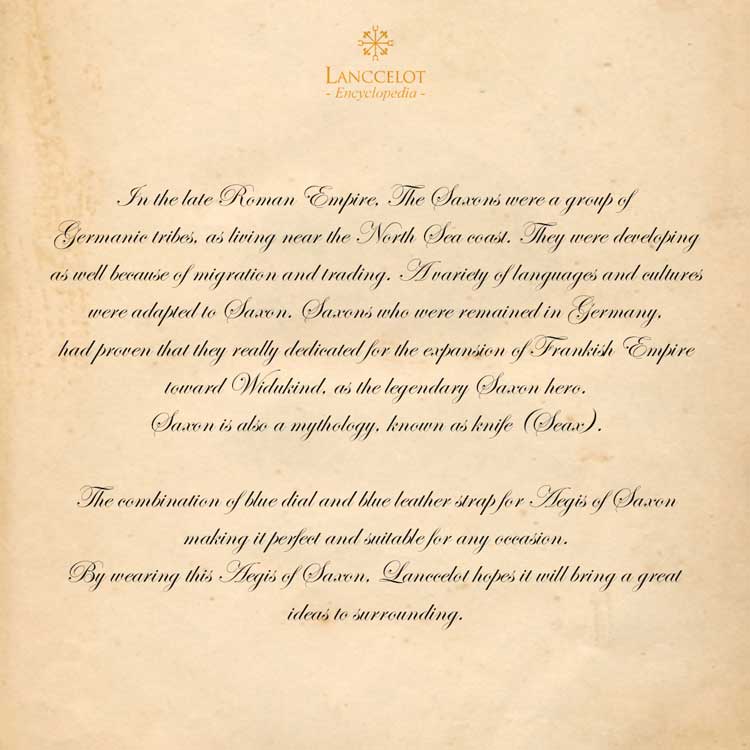 LANCCELOT
- Encyclopedia -
In the late Roman Empire, The Saxons were a group of
Germanic tribes, as living near the North Sea coast. They were developing
as well because of migration and trading. A variety of languages and cultures
were adapted to Saxon. Saxons who were remained in Germany,
had proven that they really dedicated for the expansion of Frankish Empire
toward Widukind, as the legendary Saxon hero.
Saxon is also a mythology, known as knife (Seax).
The combination of blue dial and blue leather strap for Aegis of Saxon
making it perfect and suitable for any occasion.
By wearing this Aegis of Saxon, Lanccelot hopes it will bring a great
ideas to surrounding.